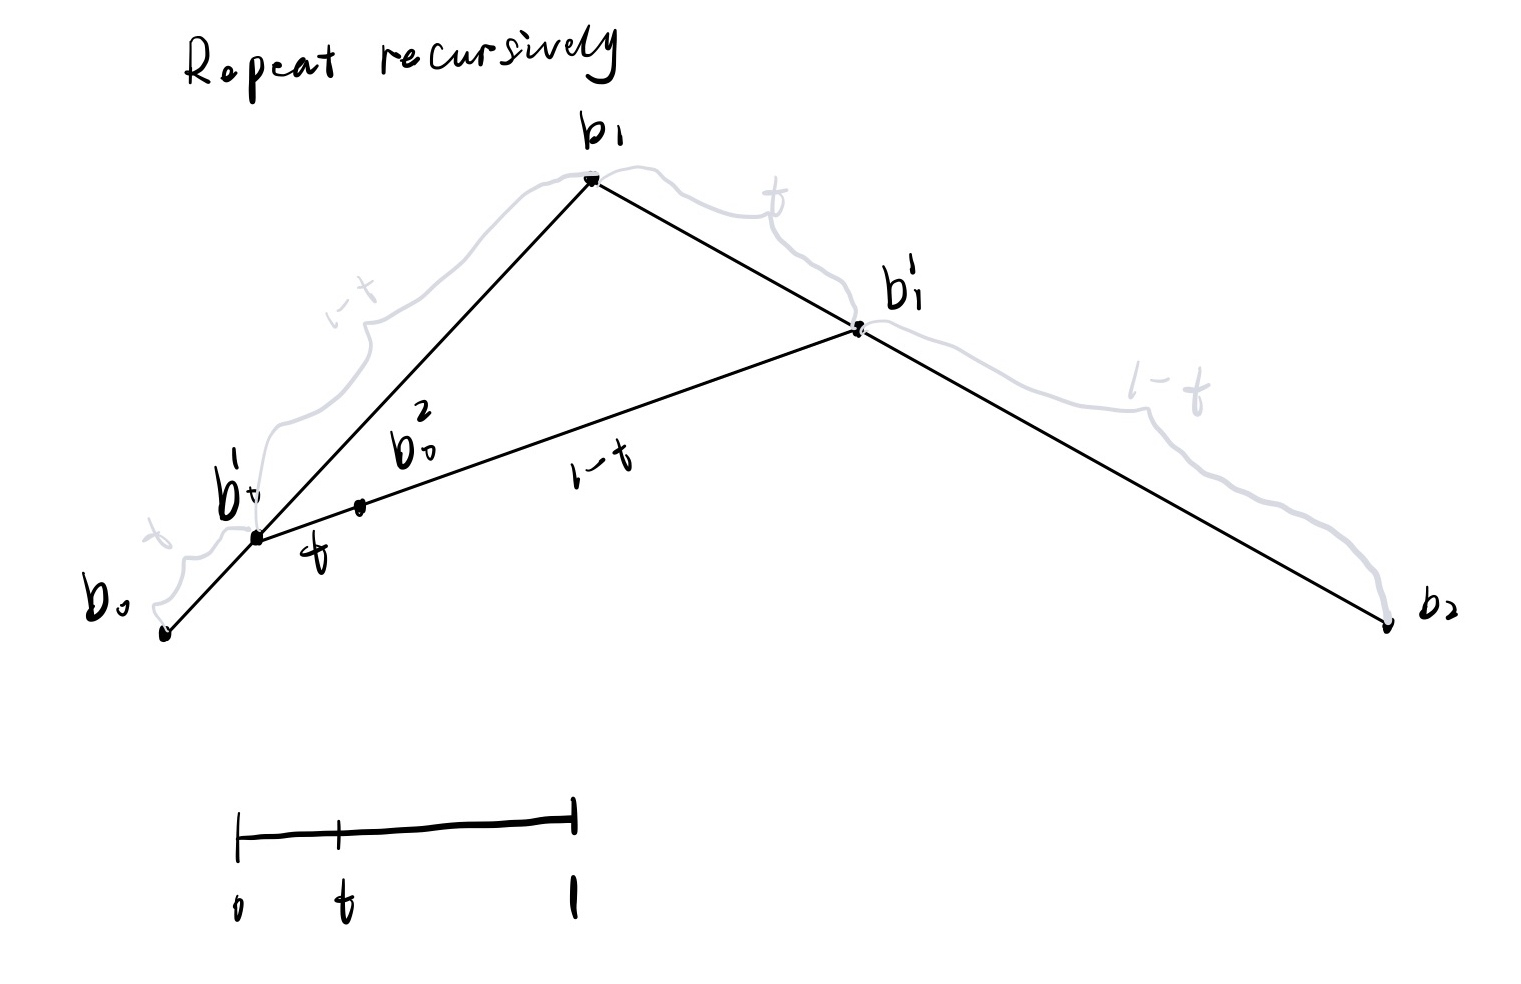 Repeat recursively
b₁
t
b₁¹
1-t
1-t
b₀²
1-t
b¹
t
t
b₀
b₂
0 t 1